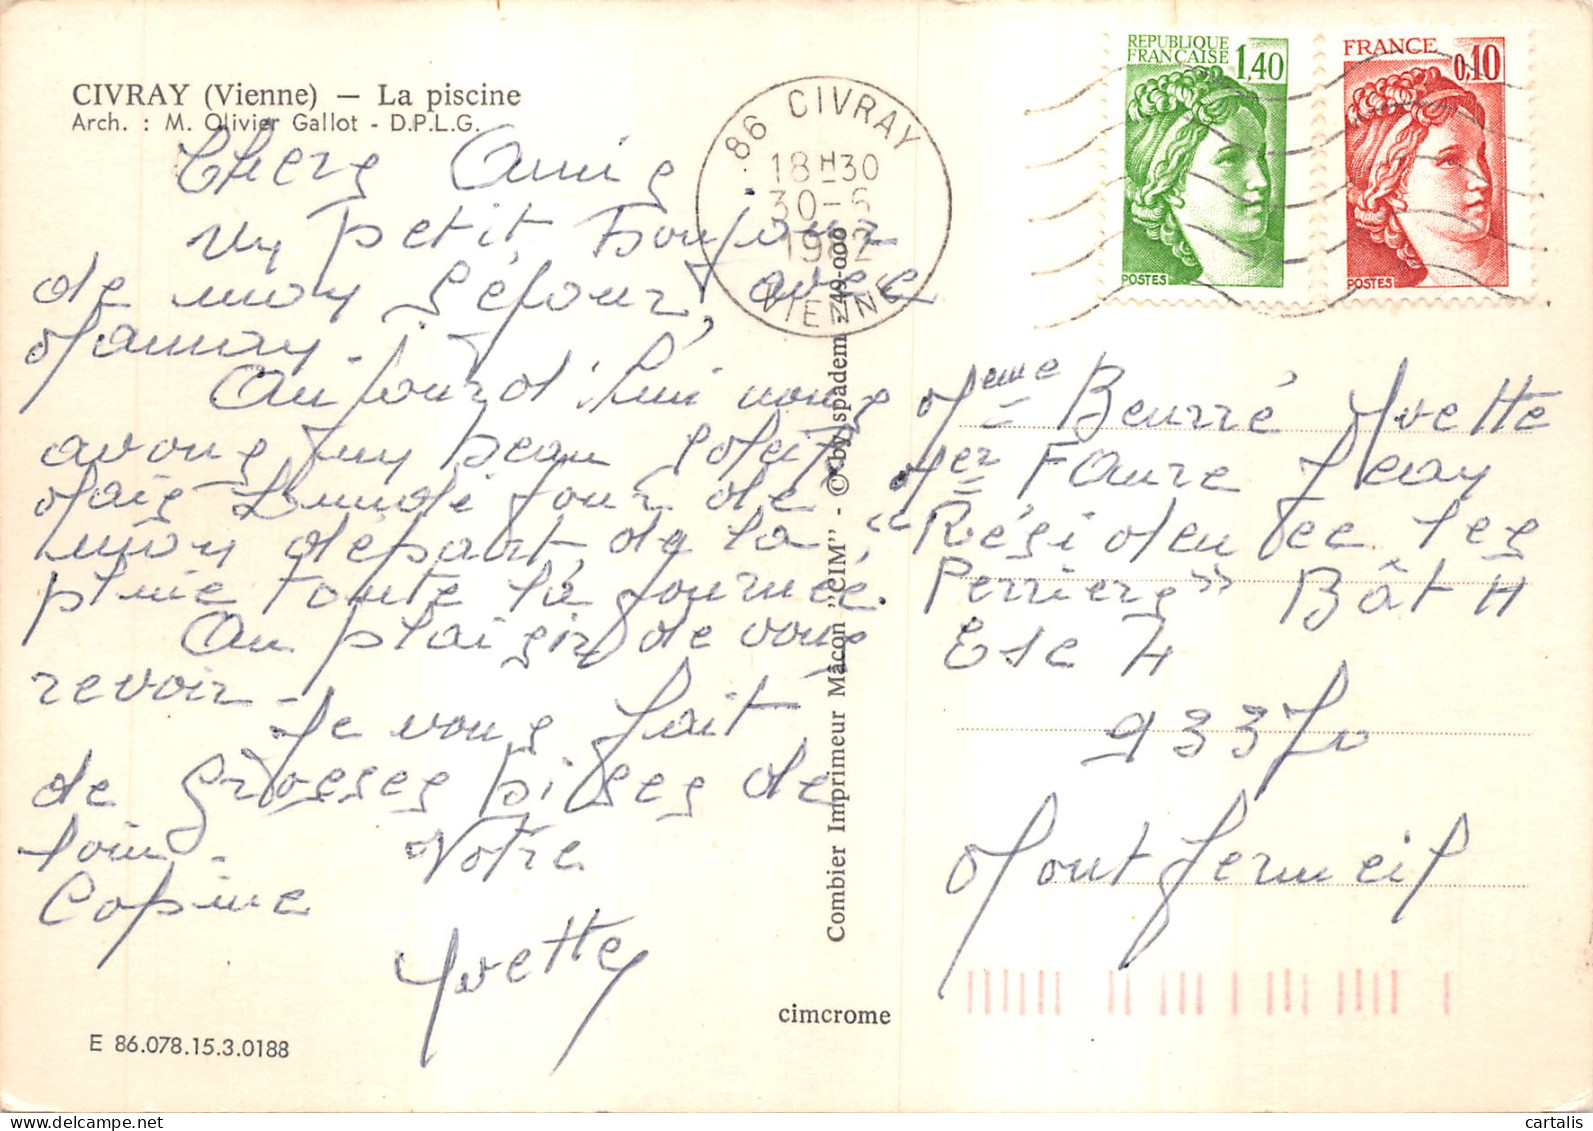 CIVRAY (Vienne) — La piscine
Arch. : M. Olivier Gallot - D.P.L.G.
Chers Amis
Un petit bonjour
de mon Séjour, avec
Maman.
Aujourd'hui nous
avons un beau soleil,
Mais Lundi jour de
mon départ, de la
pluie toute la journée.
Au plaisir de vous
revoir -
Je vous fait
de Grosses bises de
loin. Votre
Copine
Yvette
E 86.078.15.3.0188
cimcrome
Combier Imprimeur Mâcon "CIM" - © by spadem 749-000
86 CIVRAY
18H30
30-6
1982
VIENNE
REPUBLIQUE
FRANÇAISE 1,40
POSTES
FRANCE
0,10
POSTES
Meme Beurré Yvette
Mer Faure Jean
"Résidence les
Perriers" Bât H
Esc 7
93370
Montfermeil
cartalis